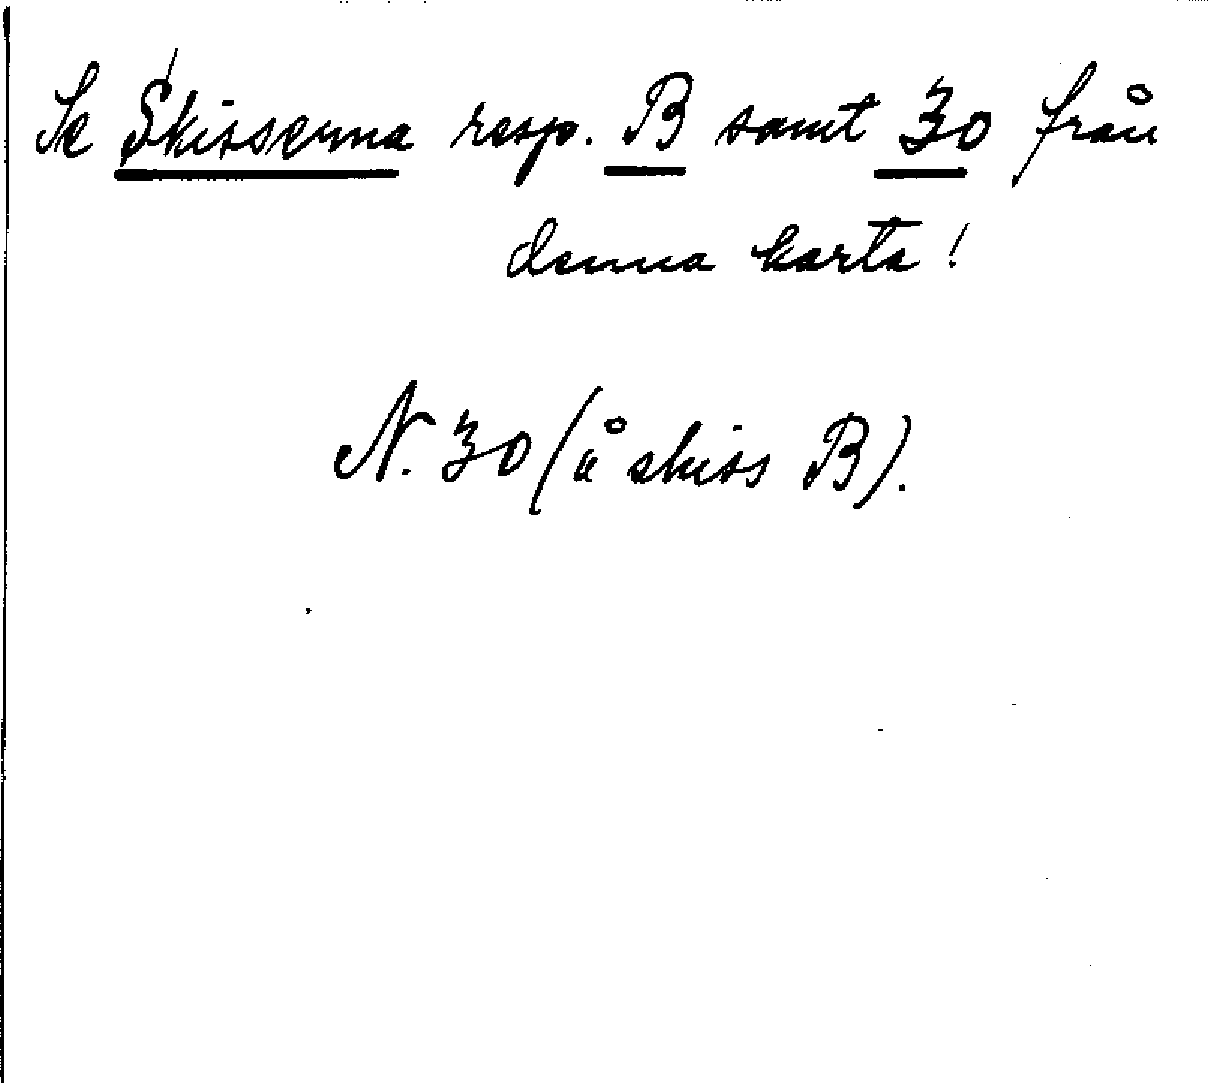 Se Skisserna resp. B samt 30 från
denna karta!
N. 30 (å skiss B).